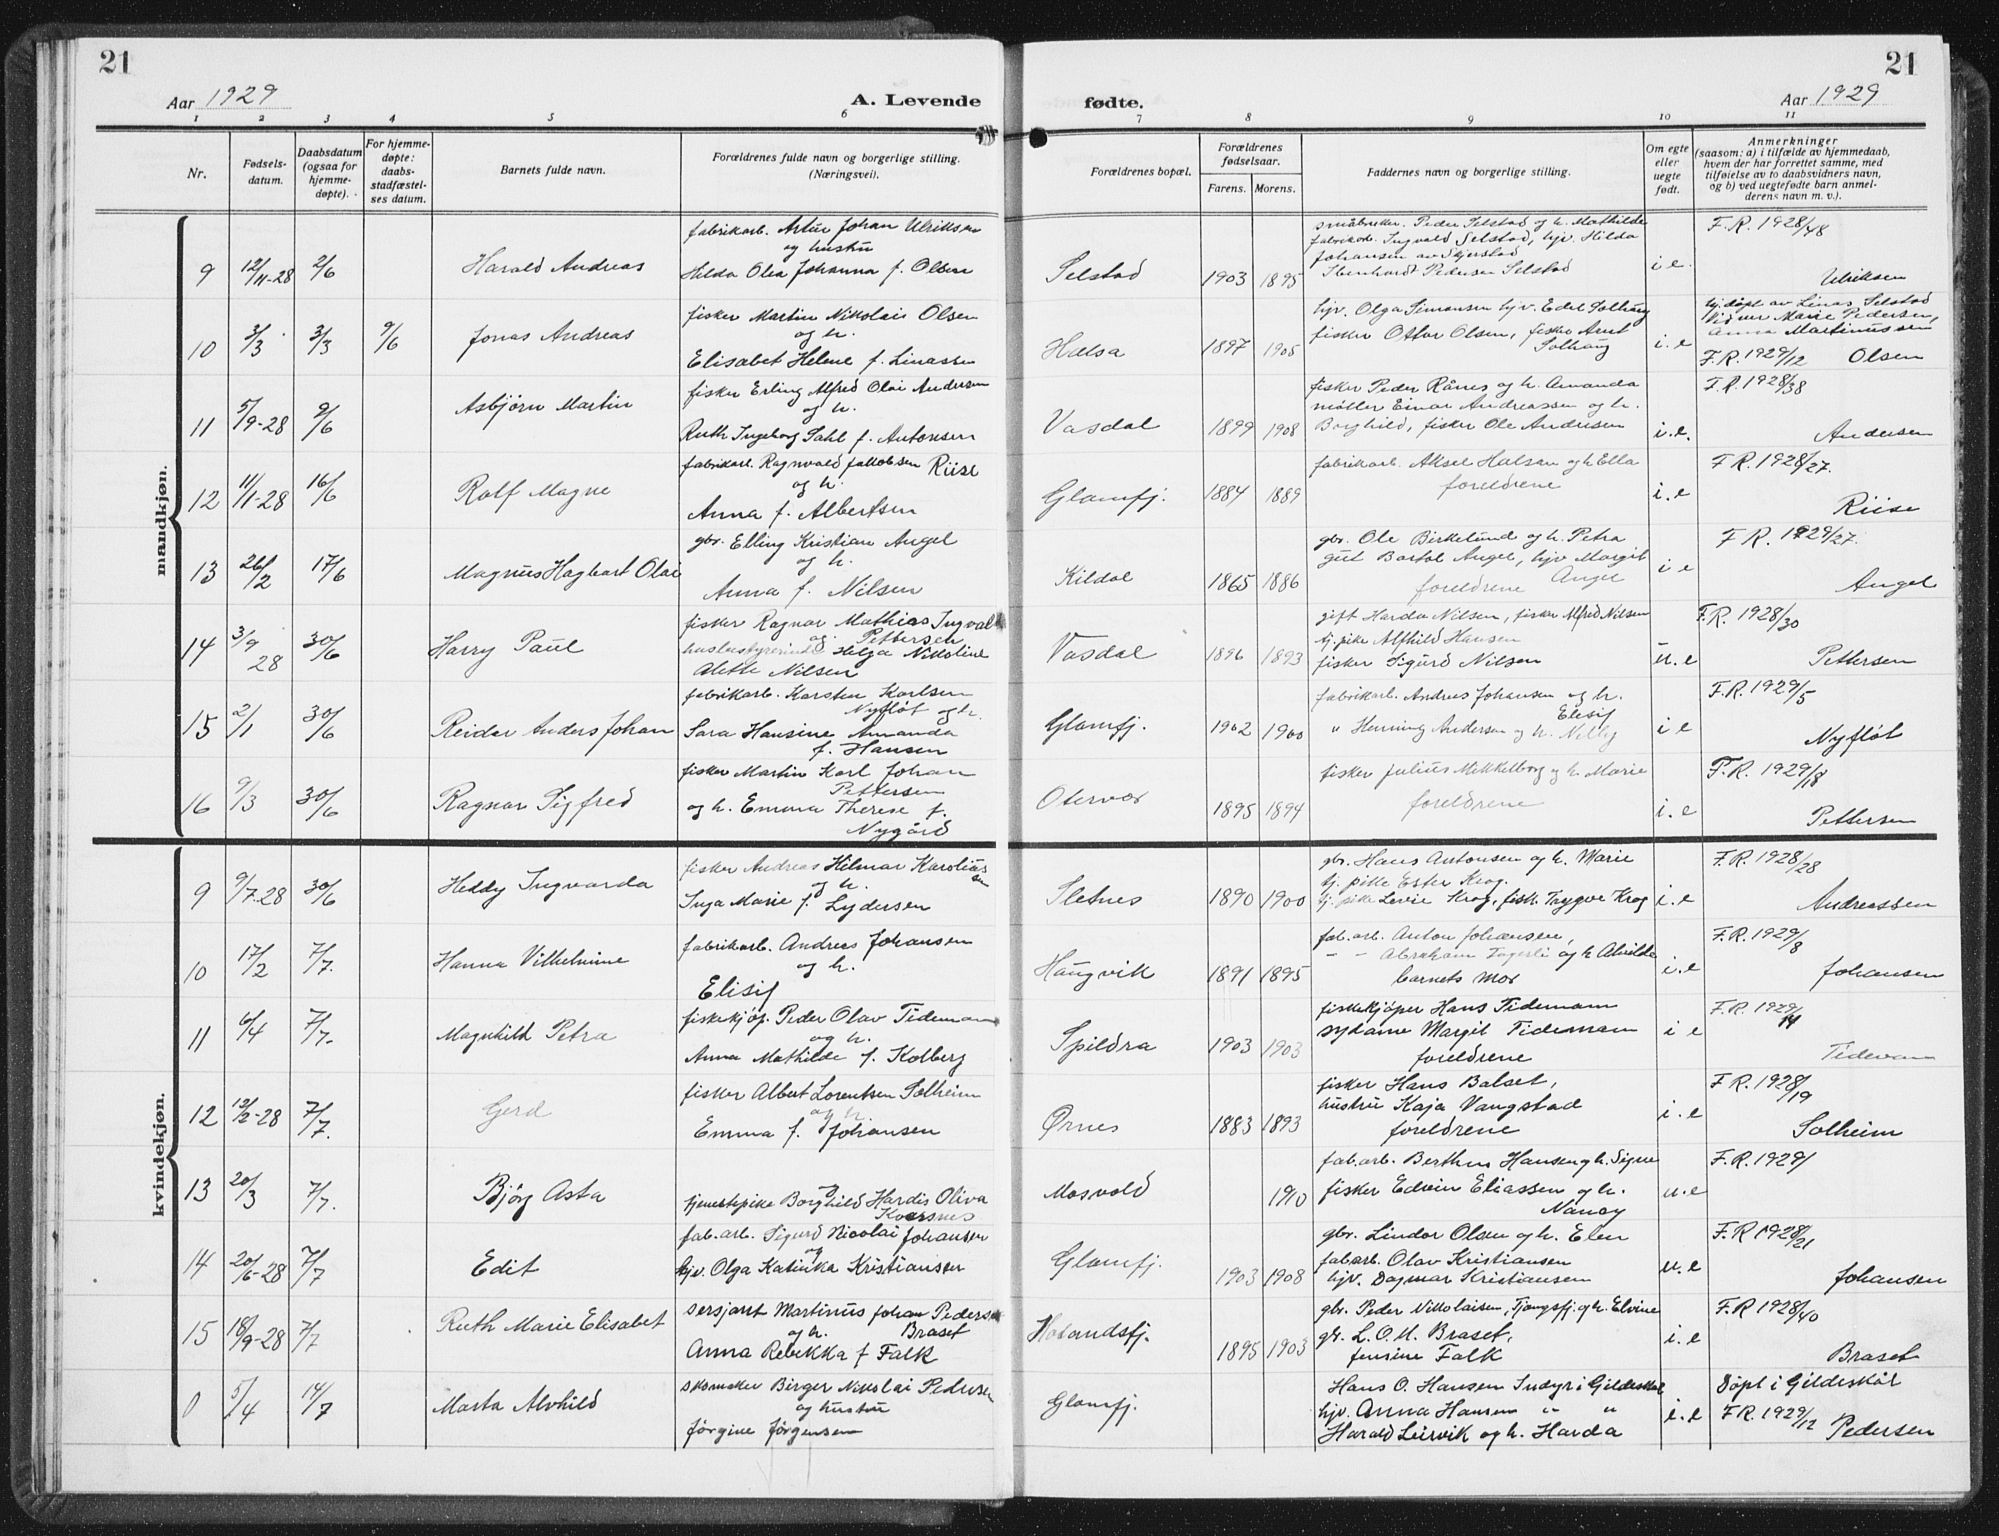 21
21
Aar 1929
A. Levende
fødte.
Aar 1929
1 2 3 4 5 6 7 8 9 10 11
Nr.
Fødsels-
datum.
Daabsdatum
(ogsaa for
hjemme-
døpte).
For hjemme-
døpte:
daabs-
stadfæstel-
ses datum.
Barnets fulde navn.
Forældrenes fulde navn og borgerlige stilling.
(Næringsvei).
Forældrenes bopæl.
Forældrenes
fødselsaar.
Farens. Morens.
Faddernes navn og borgerlige stilling.
Om egte
eller
uegte
født.
Anmerkninger
(saasom: a) i tilfælde av hjemmedaab,
hvem der har forrettet samme, med
tilføielse av to daabsvidners navn,
og b) ved uegtefødte barn anmel-
derens navn m. v.).
mandkjøn.
9 12/11-28 2/6 Harald Andreas
fabrikarb. Artur Johan Ulriksen
og hustru
Hilda Olea Johanna f. Olsen
Selstad 1903 1895
småbruker. Peder Selstad og h. Mathilde
fabrikarb. Ingvald Selstad, hjv. Hilda
Johansen av Skjerstad
Pedersen Selstad
i e.
F.R. 1928/48
Ulriksen
10 3/3 3/3 9/6 Jonas Andreas
fisker Martin Nikolais Olsen
og h.
Elisabet Helene f. Linassen
Halsa 1897 1905
hjv. Olga Simonsen hjv. Edel Solhaug
fisker Ottar Olsen, fisker Arnt
Solhaug
i. e
hj.døpt av Linas Selstad
Vidner Marie Pedersen,
Anna Martinussen
F.R. 1929/12 Olsen
11 5/9-28 9/6 Asbjørn Martin
fisker Erling Alfred Olai Andersen
og h.
Ruth Ingeborg Dahl f. Antonsen
Vasdal 1899 1908
fisker Peder Rånes og h. Amanda
møller Einar Andreassen og h.
Borghild, fisker Ole Andersen
i.e.
F.R. 1928/38
Andersen
12 11/1-28 16/6 Rolf Magne
fabrikarb. Ragnvald Jakobsen Riise
og h.
Anna f. Albertsen
Glomfj. 1884 1889
fabrikarb. Aksel Halsan og h Ella
foreldrene
i. e
F R. 1928/27.
Riise
13 26/2 17/6 Magnus Hagbart Olai
gbr. Elling Kristian Angel
og h.
Anna f. Nilsen
Kildal 1865 1886
gbr. Ole Birkelund og h. Petra
gut Bartol Angel, hjv Margit
foreldrene Angel
i e
F R. 1929/27.
Angel
14 3/9 28 30/6 Harry Paul
fisker Ragnar Mathias Ingval
og Pettersen
husbestyrerinde Helga Nikoline
Alette Nilsen
Vasdal 1896 1893
gift Harda Nilsen, fisker Alfred Nilsen
tj. pike Alfhild Hansen
fisker Sigurd Nilsen
u. e
F.R. 1928/30
Pettersen
15 2/1 30/6 Reidar Anders Johan
fabrikarb. Karsten Karlsen
Nyfløt og h.
Sara Hansine Amanda
f. Hansen
Glomfj. 1902 1900
fabrikarb. Andreas Johansen og h.
Elisif
" Henning Andersen og h. Nelly
i e
F.R. 1929/5
Nyfløt
16 9/3 30/6 Ragnar Sigfred
fisker Martin Karl Johan
Pettersen
og h. Emma Therese f.
Nygård
Otervær 1895 1894
fisker Julius Mikkelborg og h. Marie
foreldrene
i. e
F.R. 1929/18
Pettersen
kvindekjøn.
9 9/7-28 30/6 Heddy Ingvarda
fisker Andreas Hilmar Karolius
sen
og h.
Inga Marie f. Lydersen
Sletnes 1890 1900
gbr. Hans Antonsen og h. Marie
tj. pike Ester Krog.
tj. pike Krog, fisk. Trygve Krog
i. e
F.R. 1928/28
Andreassen
10 17/2 7/7. Hanna Vilhelmine
fabrikarb. Andreas Johansen
og h.
Elisif
Haugvik 1891 1895
fab. arb. Anton Johansen,
- - Abraham Fagerli og h Alvilde
barnets mor
i. e
F.R. 1929/8
Johansen
11 6/4 7/7. Magnhild Petra
fiskekjøp. Peder Olav Tidemann
og h.
Anna Mathilde f. Kolberg
Spildra 1903 1903
fiskekjøper Hans Tidemann
sydame Margit Tidemann
foreldrene
i e
F.R. 1929/14
Tidemann
12 12/2-28 7/7. Gerd
fisker Albert Lorentsen Solheim
og h.
Emma f. Johansen
Ørnes 1883 1893
fisker Hans Balset,
hustru Kaja Vangstad
foreldrene
i. e
F R. 1928/19
Solheim
13 20/3 7/7. Bjørg Asta
og
tjenestepike Borghild Hardis Oliva
Kvarsnes
Mosvold 1910
fab. arb. Berthus Hansen og h. Signe
fisker Edvin Eliassen og h.
Nancy
u. e
F.R. 1929/
14 20/6-28 7/7 Edit
fab. arb. Sigurd Nicolai Johansen
og
hjv. Olga Katinka Kristiansen
Glomfj. 1903 1908
gbr. Lindor Olsen og h. Elen
fab. arb. Olav Kristiansen
hjv. Dagmar Kristiansen
u. e
F.R 1928/21
Johansen
15 18/9-28 7/7 Ruth Marie Elisabet
sersjant Martinus Johan Peders
og h. Braset
Anna Rebekka f Falk
Holandsfj. 1895 1903
gbr. Peder Nikolaisen, Tjongsfj. og h. Elvine
gbr. L. O. M. Braset,
Jensine Falk
i. e
F. R 1928/40
Braset
0 5/4 14/7 Marta Alvhild
skomaker Birger Nikolai Pedersen
og hustru
Jørgine Jørgensen
Glomfj.
Hans O. Hansen Indyr i Gildeskål
hjv. Anna Hansen " "
Harald Leirvik og h. Harda
i. e
Døpt i Gildeskål
F R. 1929/12
Pedersen